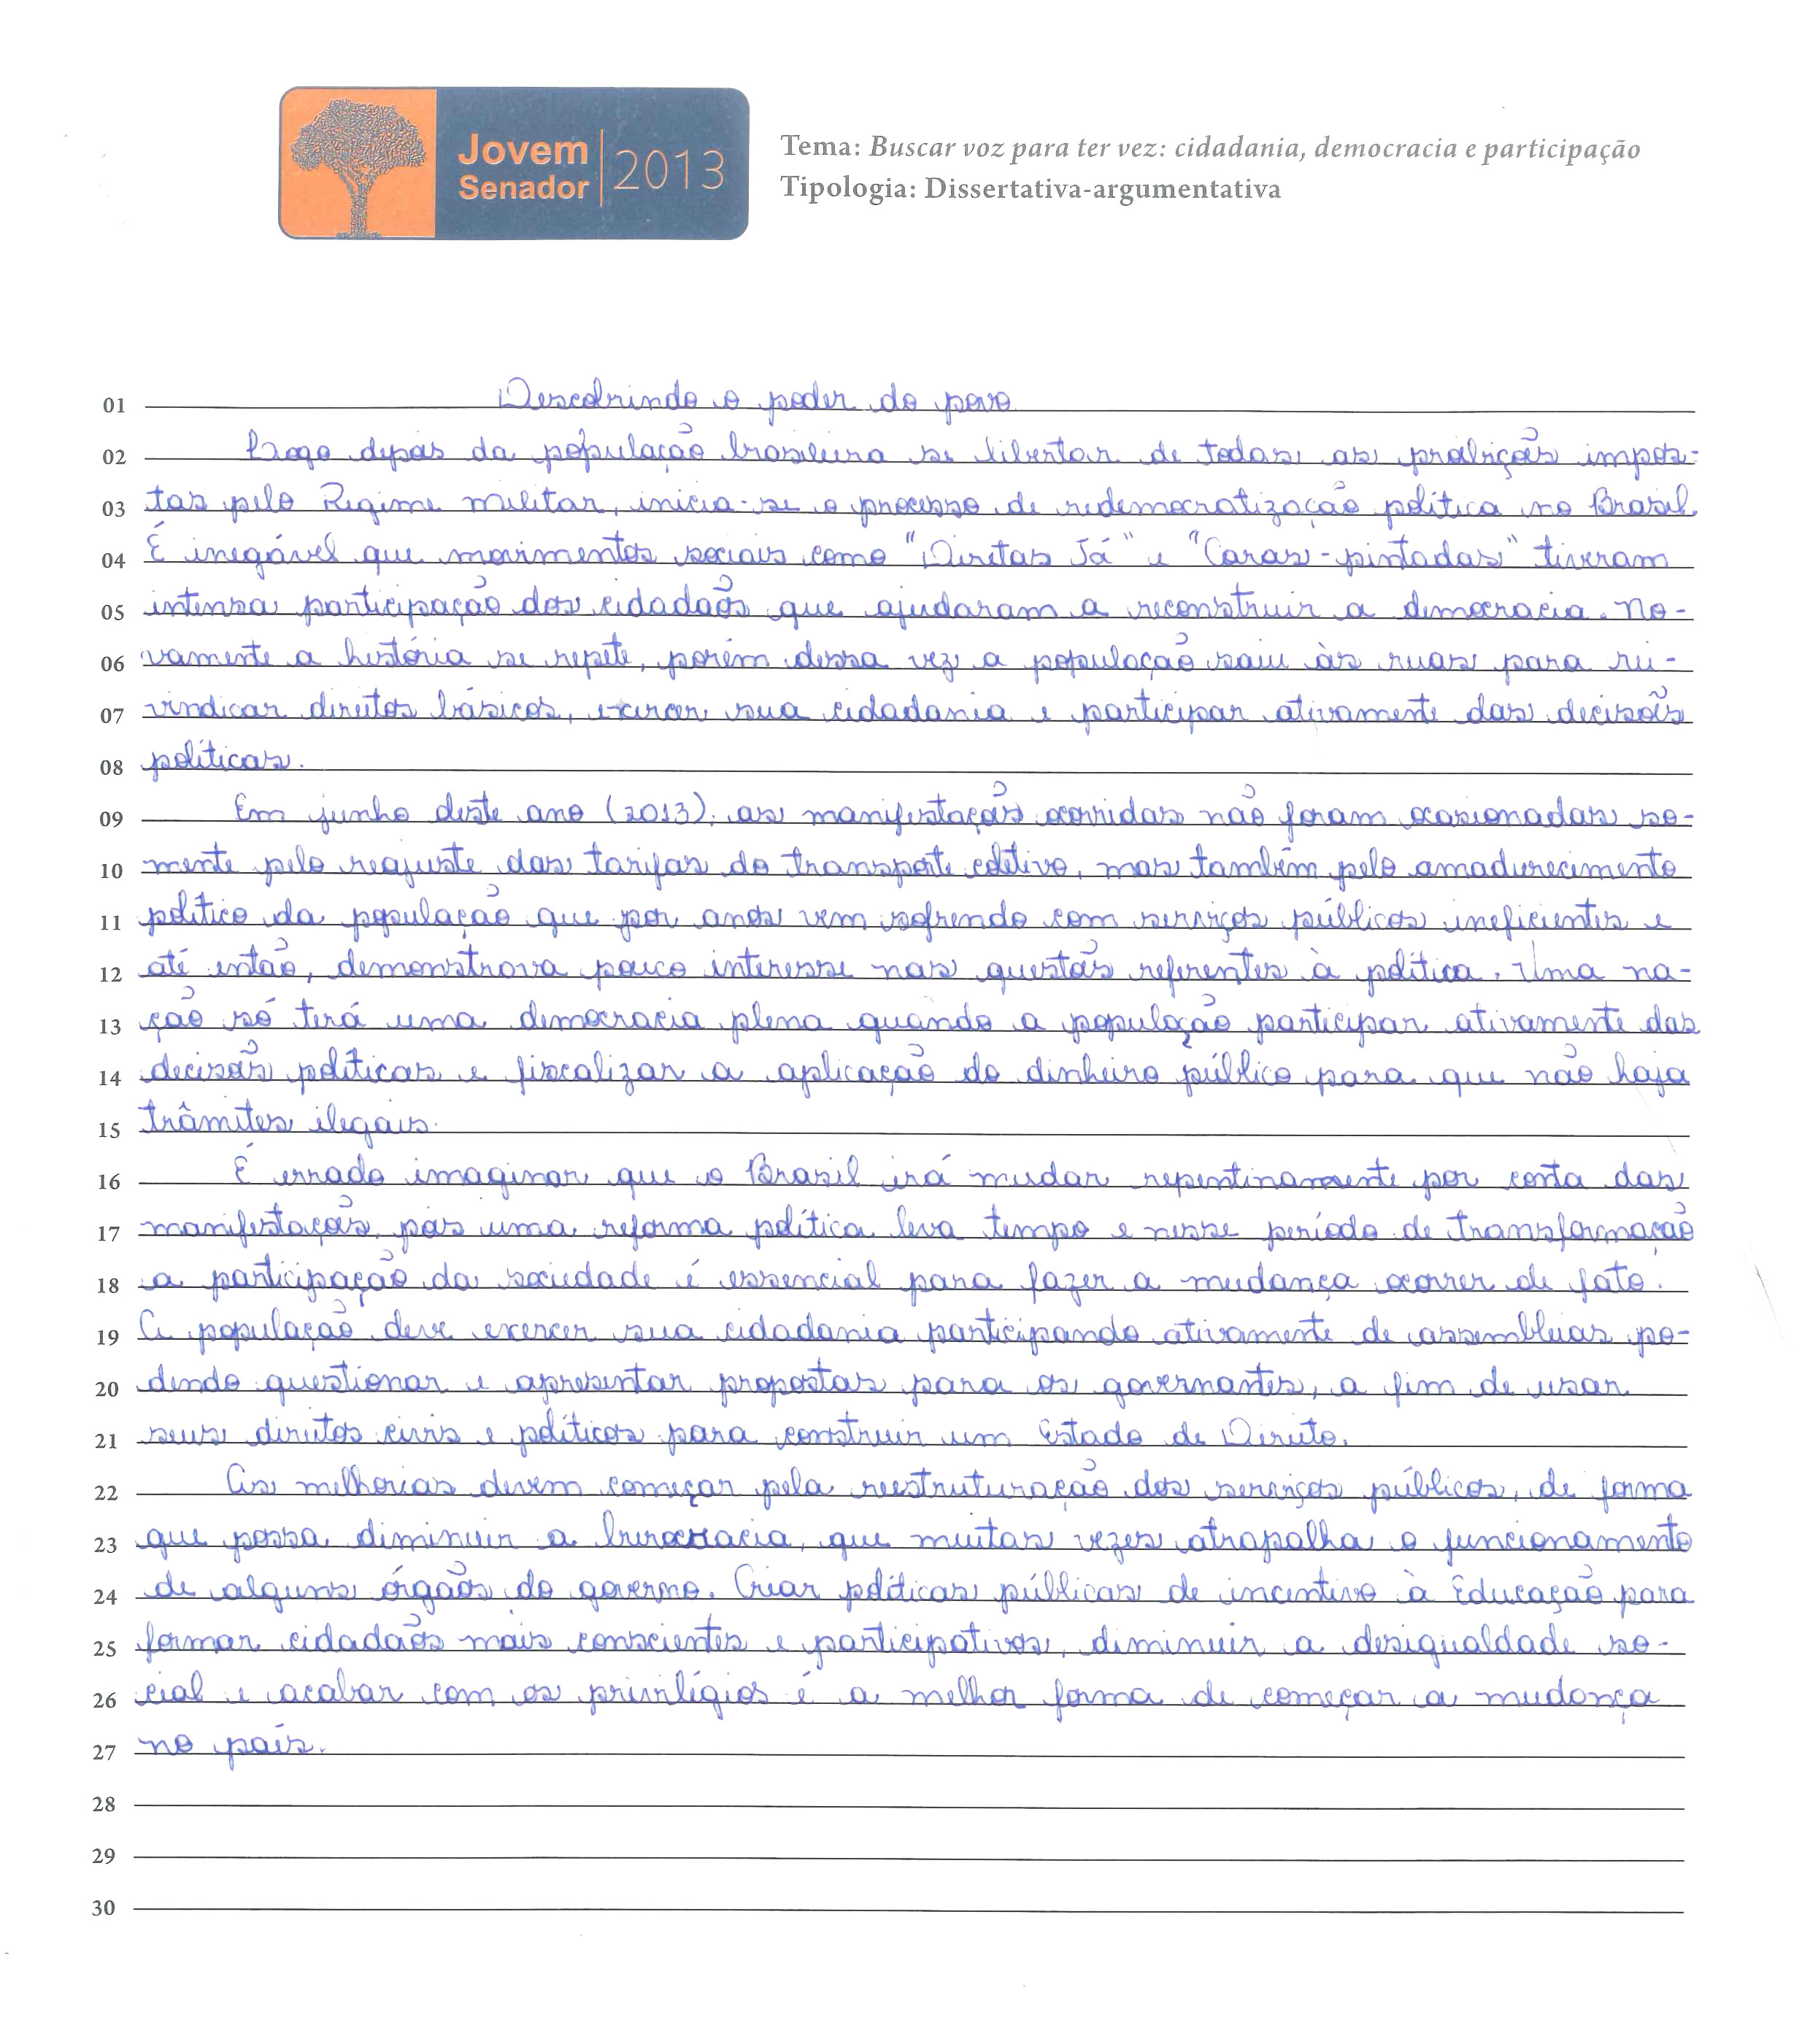 Jovem
Senador
2013
Tema: Buscar voz para ter vez: cidadania, democracia e participação
Tipologia: Dissertativa-argumentativa
01 Descobrindo o poder do povo
02 Logo depois da população brasileira se libertar de todas as proibições impos-
03 tas pelo Regime militar, inicia-se o processo de redemocratização política no Brasil.
04 É inegável que movimentos sociais como "Diretas Já" e "Caras-pintadas" tiveram
05 intensa participação dos cidadãos que ajudaram a reconstruir a democracia. No-
06 vamente a história se repete, porém dessa vez a população saiu às ruas para rei-
07 vindicar direitos básicos, exercer sua cidadania e participar ativamente das decisões
08 políticas.
09 Em junho deste ano (2013), as manifestações ocorridas não foram ocasionadas so-
10 mente pelo reajuste das tarifas do transporte coletivo, mas também pelo amadurecimento
11 político da população que por anos vem sofrendo com serviços públicos ineficientes e
12 até então, demonstrava pouco interesse nas questões referentes à política. Uma na-
13 ção só terá uma democracia plena quando a população participar ativamente das
14 decisões políticas e fiscalizar a aplicação do dinheiro público para que não haja
15 trâmites ilegais.
16 É errado imaginar que o Brasil irá mudar repentinamente por conta das
17 manifestações, pois uma reforma política leva tempo e nesse período de transformação
18 a participação da sociedade é essencial para fazer a mudança ocorrer de fato.
19 A população deve exercer sua cidadania participando ativamente de assembleias po-
20 dendo questionar e apresentar propostas para os governantes, a fim de usar
21 seus direitos civis e políticos para construir um Estado de Direito.
22 As melhorias devem começar pela reestruturação dos serviços públicos, de forma
23 que possa diminuir a burocracia, que muitas vezes atrapalha o funcionamento
24 de alguns órgãos do governo. Criar políticas públicas de incentivo à Educação para
25 formar cidadãos mais conscientes e participativos, diminuir a desigualdade so-
26 cial e acabar com os privilégios é a melhor forma de começar a mudança
27 no país.
28
29
30